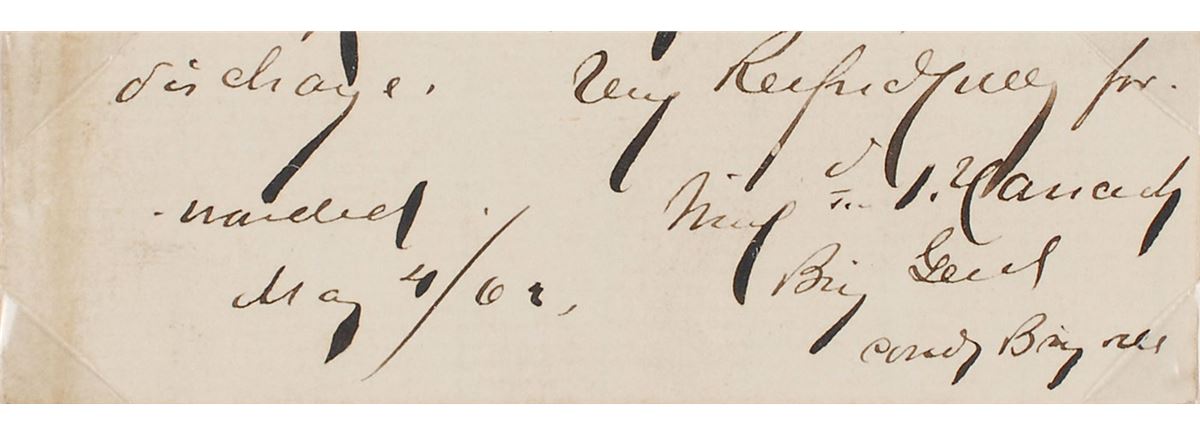 discharge. Very Respectfully for-
-warded. Winfd S. Hancock
May 4/62, Brig Genl
comdg Brigade